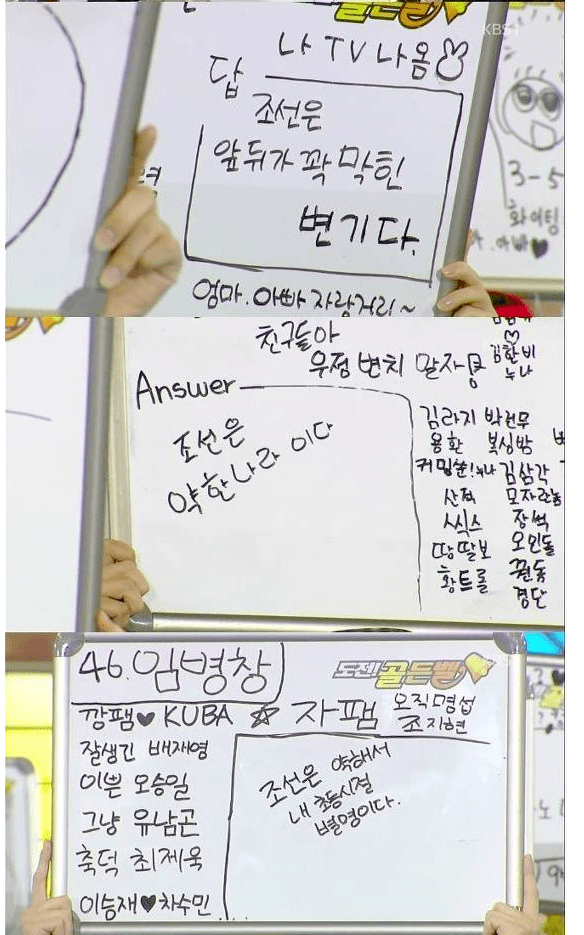 골든벨
KBS1
나 TV 나옴
답
조선은
앞뒤가 꽉 막힌
변기다.
엄마. 아빠 자랑거리~
3-5
화이팅
아빠♥
친구들아
우정 변치 말자
김환비
누나
Answer
조선은
약한나라 이다
김라지 박천무
용환 복싱밤
커밍쑨!누나 김삼각
산적 모자란놈
식스 장썩
땅딸보 오인돌
황트롤 꿘둥
경단
46. 임병창
도전! 골든벨
깡팸♥ KUBA ☆ 자팸
오직명섭
조지현
잘생긴 배재영
이쁜 오승일
그냥 유남곤
축덕 최제욱
이승재♥차수민....
조선은 약해서
내 초등시절
별명이다.